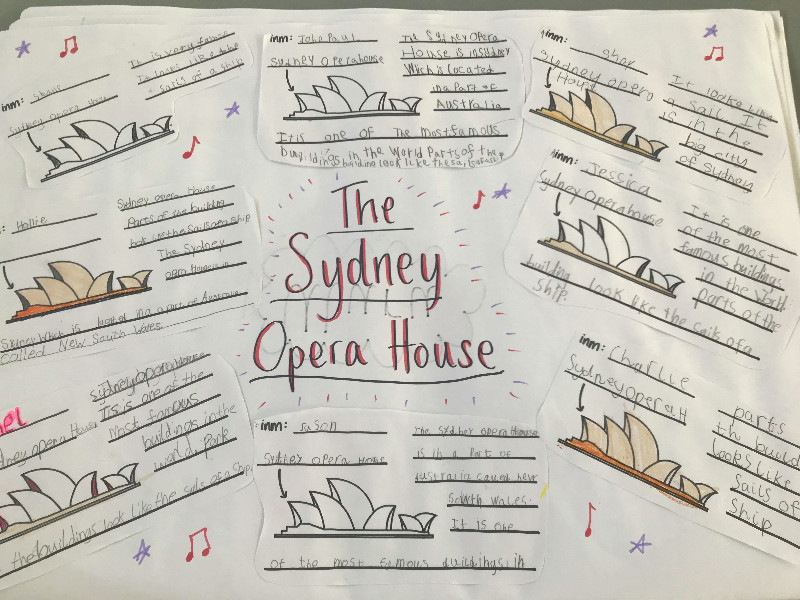 inm: Shane
Sydney opera
It is very famous
It looks like a the
sails of a ship
inm: John Paul
Sydney Operahouse
The Sydney Opera
House is in Sydney
Which is located
in a part of
Australia
It is one of the most famous
buildings in the World Parts of the
building look like the sails of a ship
inm:
Sydney opera
House
It looks like
a sail It
is in the
big city
of sydney
Hollie
Sydney opera House
Parts of the building
The Sydney
opera House is in
Sydney Which is located in a part of Australia
called New South Wales
The
Sydney
Opera House
inm: Jessica
Sydney operahouse
It is one
of the most
famous buildings
in the world.
Parts of the
building look like the sails of a
ship.
Sydney opera House
sydney opera House
It is is one of the
most famous
buildings in the
world Park
the buildings look like the sails of a ship
inm: Jason
Sydney opera House
The Sydney opera House
is in a Part of
South Wales.
It is one
of the most famous buildings in
inm: Charlie
Sydney Opera H
parts
th build
looks like
sails of
Ship